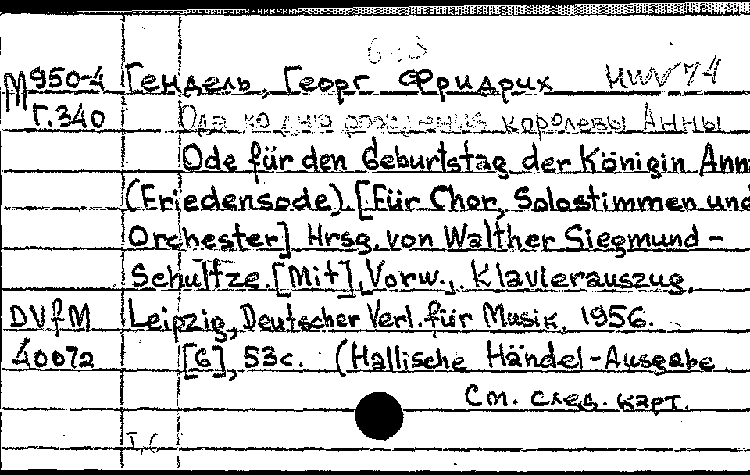 M 950-4 Гендель, Георг Фридрих HWV 74
Г.340 Ода ко дню рождения королевы Анны
Ode für den Geburtstag der Königin Ann
(Friedensode). [Für Chor, Solostimmen und
Orchester] Hrsg. von Walther Siegmund-
Schultze. [Mit] Vorw., Klavierauszug.
DVfM Leipzig, Deutscher Verl. für Musik, 1956.
40072 [6], 53 с. (Hallische Händel-Ausgabe
См. след. карт.